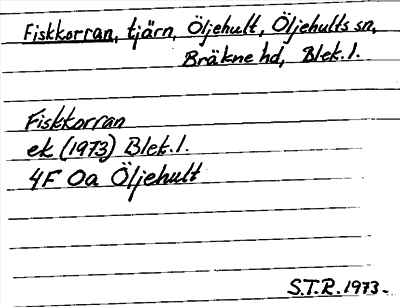 Fiskkorran, tjärn, Öljehult, Öljehults sn,
Bräkne hd, Blek. l.
Fiskkorran
ek (1973) Blek. l.
4F 0a Öljehult
S.T.R. 1973.